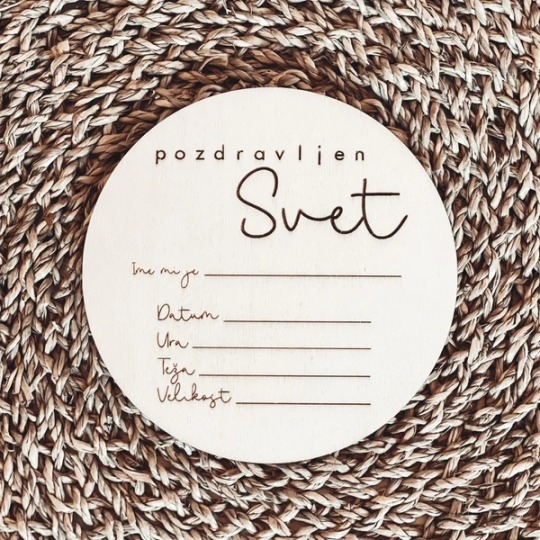 pozdravljen
Svet
Ime mi je
Datum
Ura
Teža
Velikost